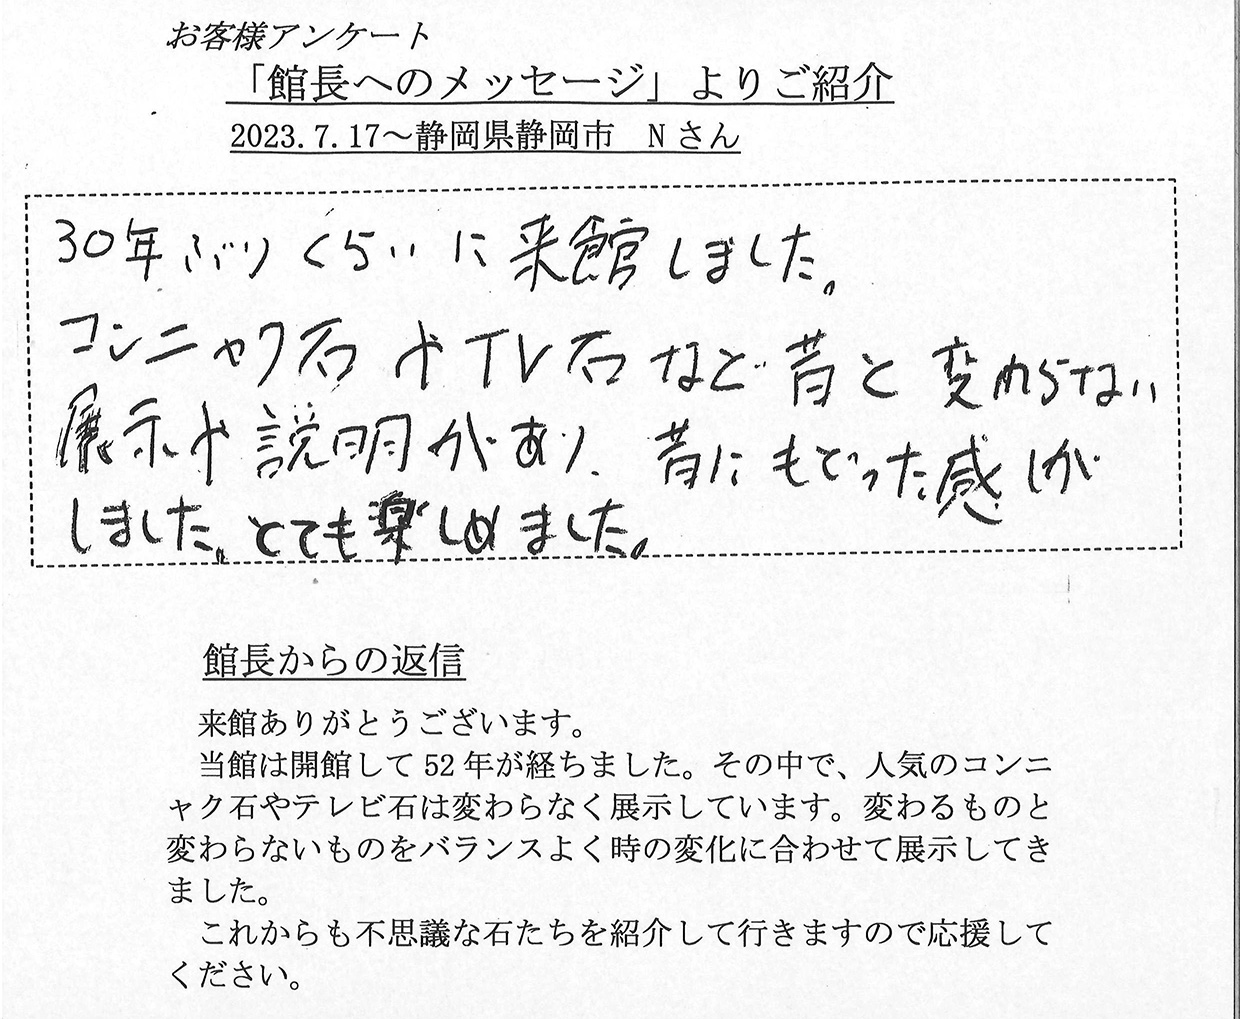 お客様アンケート
「館長へのメッセージ」よりご紹介
2023.7.17～静岡県静岡市　Nさん
30年ぶりくらいに来館しました。
コンニャク石やTV石など昔と変わらない
展示や説明があり、昔にもどった感じが
しました。とても楽しめました。
館長からの返信
来館ありがとうございます。
当館は開館して52年が経ちました。その中で、人気のコンニ
ャク石やテレビ石は変わらなく展示しています。変わるものと
変わらないものをバランスよく時の変化に合わせて展示してき
ました。
これからも不思議な石たちを紹介して行きますので応援して
ください。